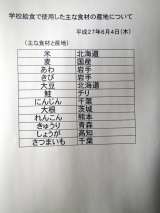 学校給食で使用した主な食材の産地について
平成27年6月4日(木)
(主な食材と産地)
米 北海道
麦 国産
あわ 岩手
きび 岩手
大豆 北海道
鮭 チリ
にんじん 千葉
大根 茨城
れんこん 熊本
きゅうり 青森
しょうが 高知
さつまいも 千葉